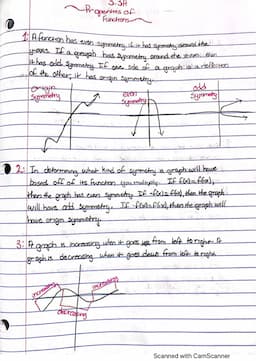 3.3A
Properties of
Functions
1: A function has even symmetry if it has symmetry around the
y-axis. If a graph has symmetry around the then
it has odd symmetry. If one side of a graph is a reflection
of the other, it has origin symmetry.
origin
Symmetry
even
Symmetry
odd
Symmetry
2: In determining what kind of symmetry a graph will have
based off of its function, you multiply. If f(x)=f(x),
then the graph has even symmetry. If -f(x)=f(x), then the graph
will have odd symmetry. If -f(x)=f(x), then the graph will
have origin symmetry.
3: A graph is increasing when it goes up from left to right. A
graph is decreasing when it goes down from left to right.
increasing
increasing
decreasing
Scanned with CamScanner